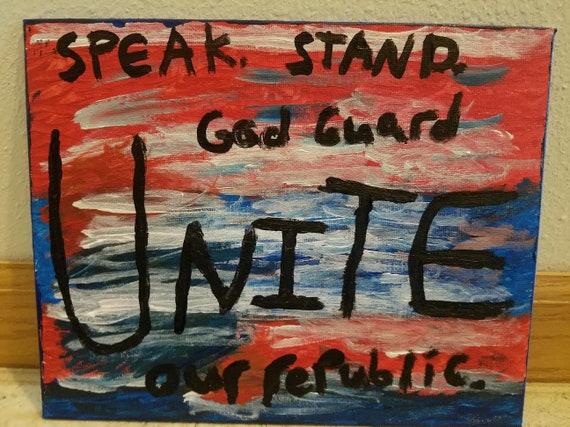 SPEAK. STAND.
God Guard
UNITE
our republic.